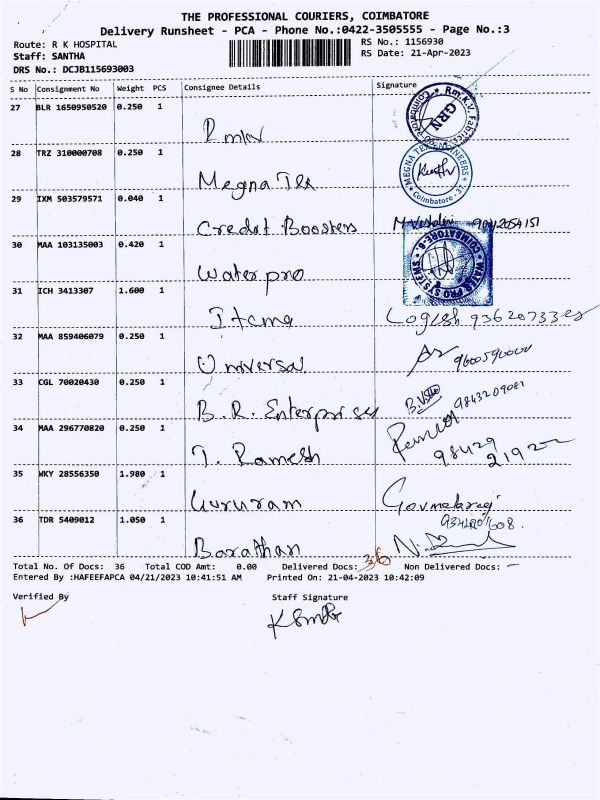 THE PROFESSIONAL COURIERS, COIMBATORE
Delivery Runsheet - PCA - Phone No.:0422-3505555 - Page No.:3
Route: R K HOSPITAL RS No.: 1156930
Staff: SANTHA RS Date: 21-Apr-2023
DRS No.: DCJB115693003
S No Consignment No Weight PCS Consignee Details Signature
27 BLR 1650950520 0.250 1
Rmkv
Rm.K.V. Fabrics Coimbatore GRN
28 TRZ 310000708 0.250 1
Megna Tex
MEGNA TEX Coimbatore - 37.
29 IXM 503579571 0.040 1
Credit Boosters
30 MAA 103135003 0.420 1
Water pro
WATER PRO SYSTEMS COIMBATORE-6.
31 ICH 3413307 1.600 1
Itama Logesh
32 MAA 859406079 0.250 1
Universal
33 CGL 70020430 0.250 1
B.R. Enterprises 9843209081
34 MAA 296770820 0.250 1
T. Ramesh 98429
35 WKY 28556350 1.980 1
Gururam
36 TDR 5409012 1.050 1
Barathan
Total No. Of Docs: 36 Total COD Amt: 0.00 Delivered Docs: 36 Non Delivered Docs: -
Entered By :HAFEEFAPCA 04/21/2023 10:41:51 AM Printed On: 21-04-2023 10:42:09
Verified By Staff Signature